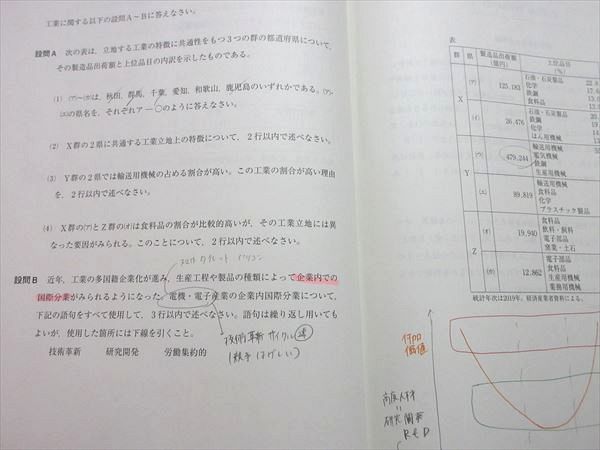 工業に関する以下の設問A～Bに答えなさい。
設問A 次の表は，立地する工業の特徴に共通性をもつ3つの群の都道府県について，
その製造品出荷額と上位品目の内訳を示したものである。
(1) (ア)～(カ)は，秋田，群馬，千葉，愛知，和歌山，鹿児島のいずれかである。(ア)～
(カ)の県名を，それぞれア－○のように答えなさい。
(2) X群の2県に共通する工業立地上の特徴について，2行以内で述べなさい。
(3) Y群の2県では輸送用機械の占める割合が高い。この工業の割合が高い理由
を，2行以内で述べなさい。
(4) X群の(ア)とZ群の(オ)は食料品の割合が比較的高いが，その工業立地には異
なった要因がみられる。このことについて，2行以内で述べなさい。
設問B 近年，工業の多国籍企業化が進み，生産工程や製品の種類によって企業内での
国際分業がみられるようになった。電機・電子産業の企業内国際分業について，
下記の語句をすべて使用して，3行以内で述べなさい。語句は繰り返し用いても
よいが，使用した箇所には下線を引くこと。
技術革新 研究開発 労働集約的
技術革新 サイクル 速
(競争はげしい)
表
群 県 製造品出荷額
(億円) 上位品目
(%)
X (ア) 125,183 石油・石炭製品 22.
化学 17.
鉄鋼 13.
食料品 13.
(イ) 26,476 石油・石炭製品 20
鉄鋼 19
化学 14
はん用機械
Y (ウ) 479,244 輸送用機械 55
電気機械
鉄鋼
生産用機械
(エ) 89,819 輸送用機械
食料品
化学
プラスチック製品
Z (オ) 19,940 食料品
飲料・飼料
電子部品
窯業・土石
(カ) 12,862 電子部品
食料品
生産用機械
業務用機械
統計年次は2019年。経済産業省資料による。
付加
価値
高度人材
研究開発
R&D